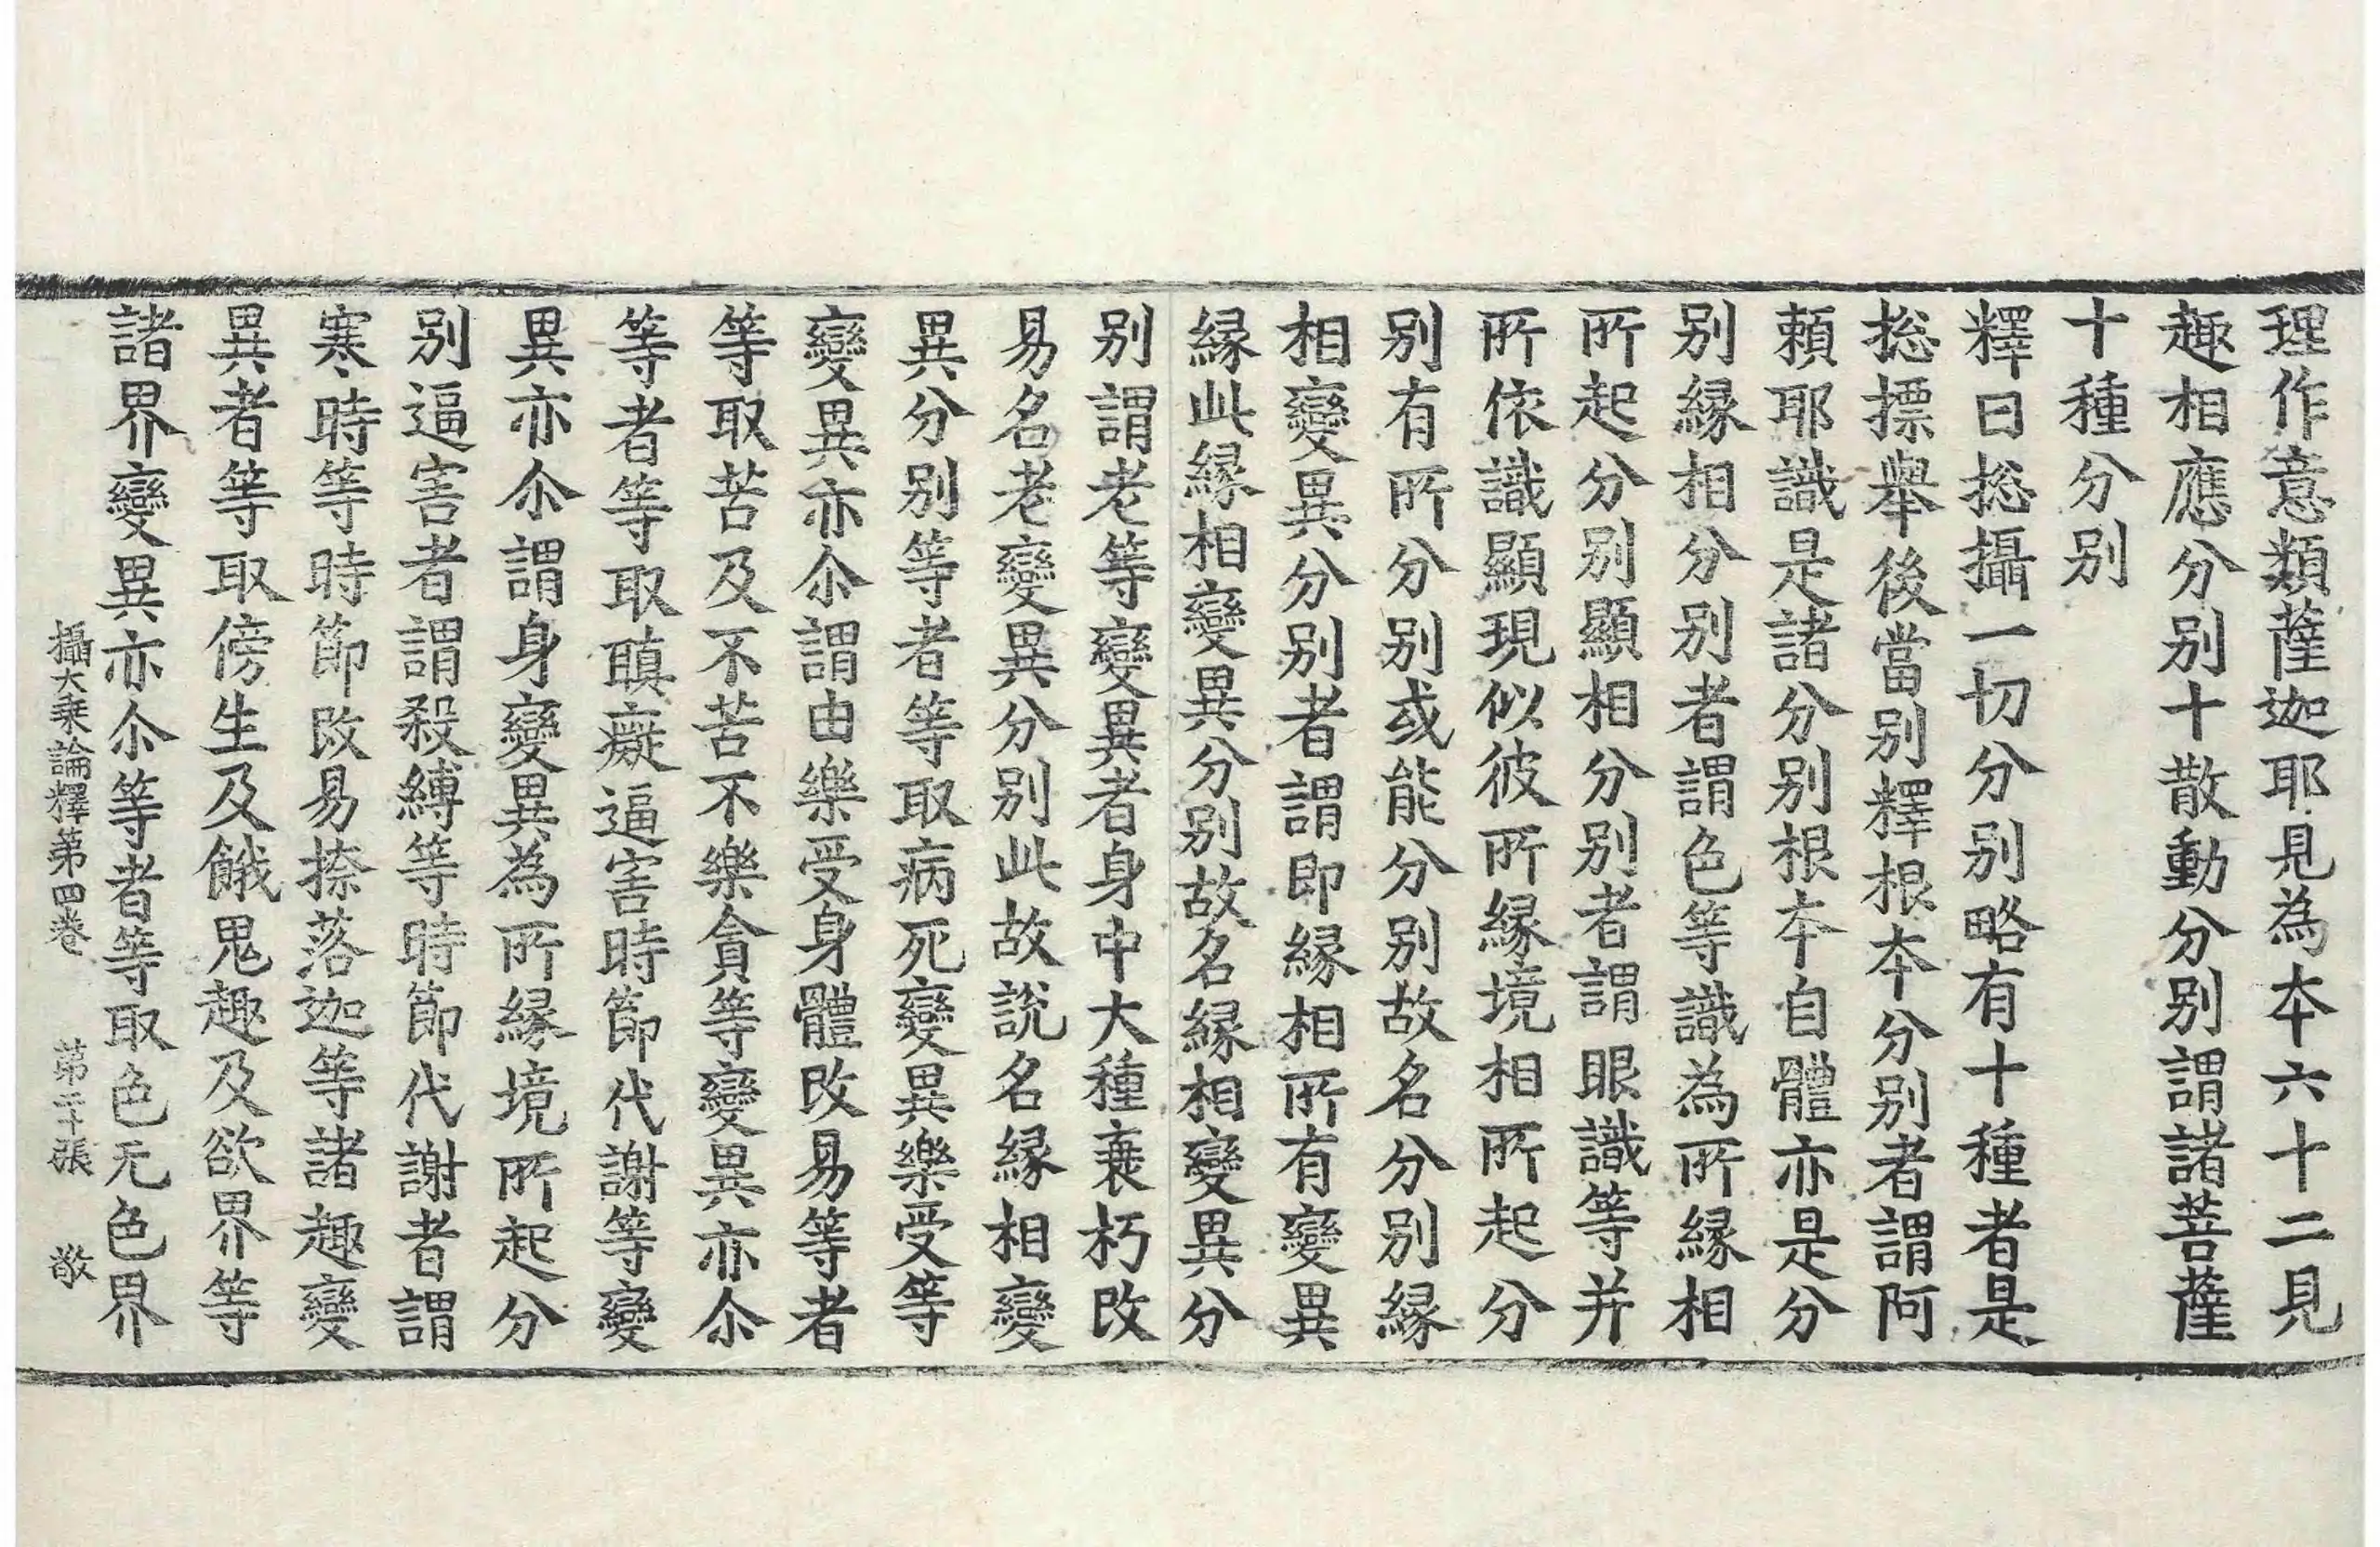 理作意類薩迦耶見為本六十二見
趣相應分別十散動分別謂諸菩薩
十種分別
釋曰捴攝一切分別略有十種者是
捴摽舉後當別釋根本分別者謂阿
頼耶識是諸分別根本自體亦是分
別緣相分別者謂色等識為所緣相
所起分別顯相分別者謂眼識等并
所依識顯現似彼所緣境相所起分
別有所分別或能分別故名分別緣
相變異分別者謂即緣相所有變異
緣此緣相變異分別故名緣相變異分
別謂老等變異者身中大種衰朽改
易名老變異分別此故說名緣相變
異分別等者等取病死變異樂受等
變異亦尒謂由樂受身體改易等者
等取苦及不苦不樂貪等變異亦尒
等者等取瞋癡逼害時節代謝等變
異亦尒謂身變異為所緣境所起分
別逼害者謂殺縛等時節代謝者謂
寒時等時節改易捺落迦等諸趣變
異者等取傍生及餓鬼趣及欲界等
諸界變異亦尒等者等取色无色界
攝大乘論釋第四卷 第二十張 敬